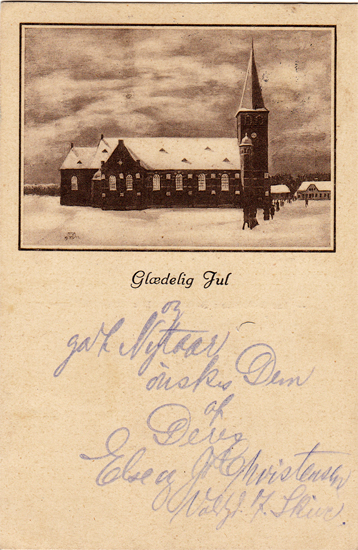 Glædelig Jul
og
godt Nytaar
ønskes Dem
af
Deres
Else og J. Christensen
Skive